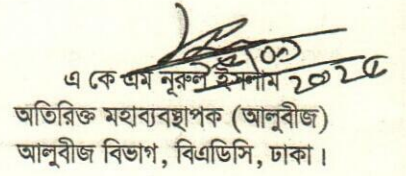 এ কে এম নূরুল ইসলাম
অতিরিক্ত মহাব্যবস্থাপক (আলুবীজ)
আলুবীজ বিভাগ, বিএডিসি, ঢাকা।